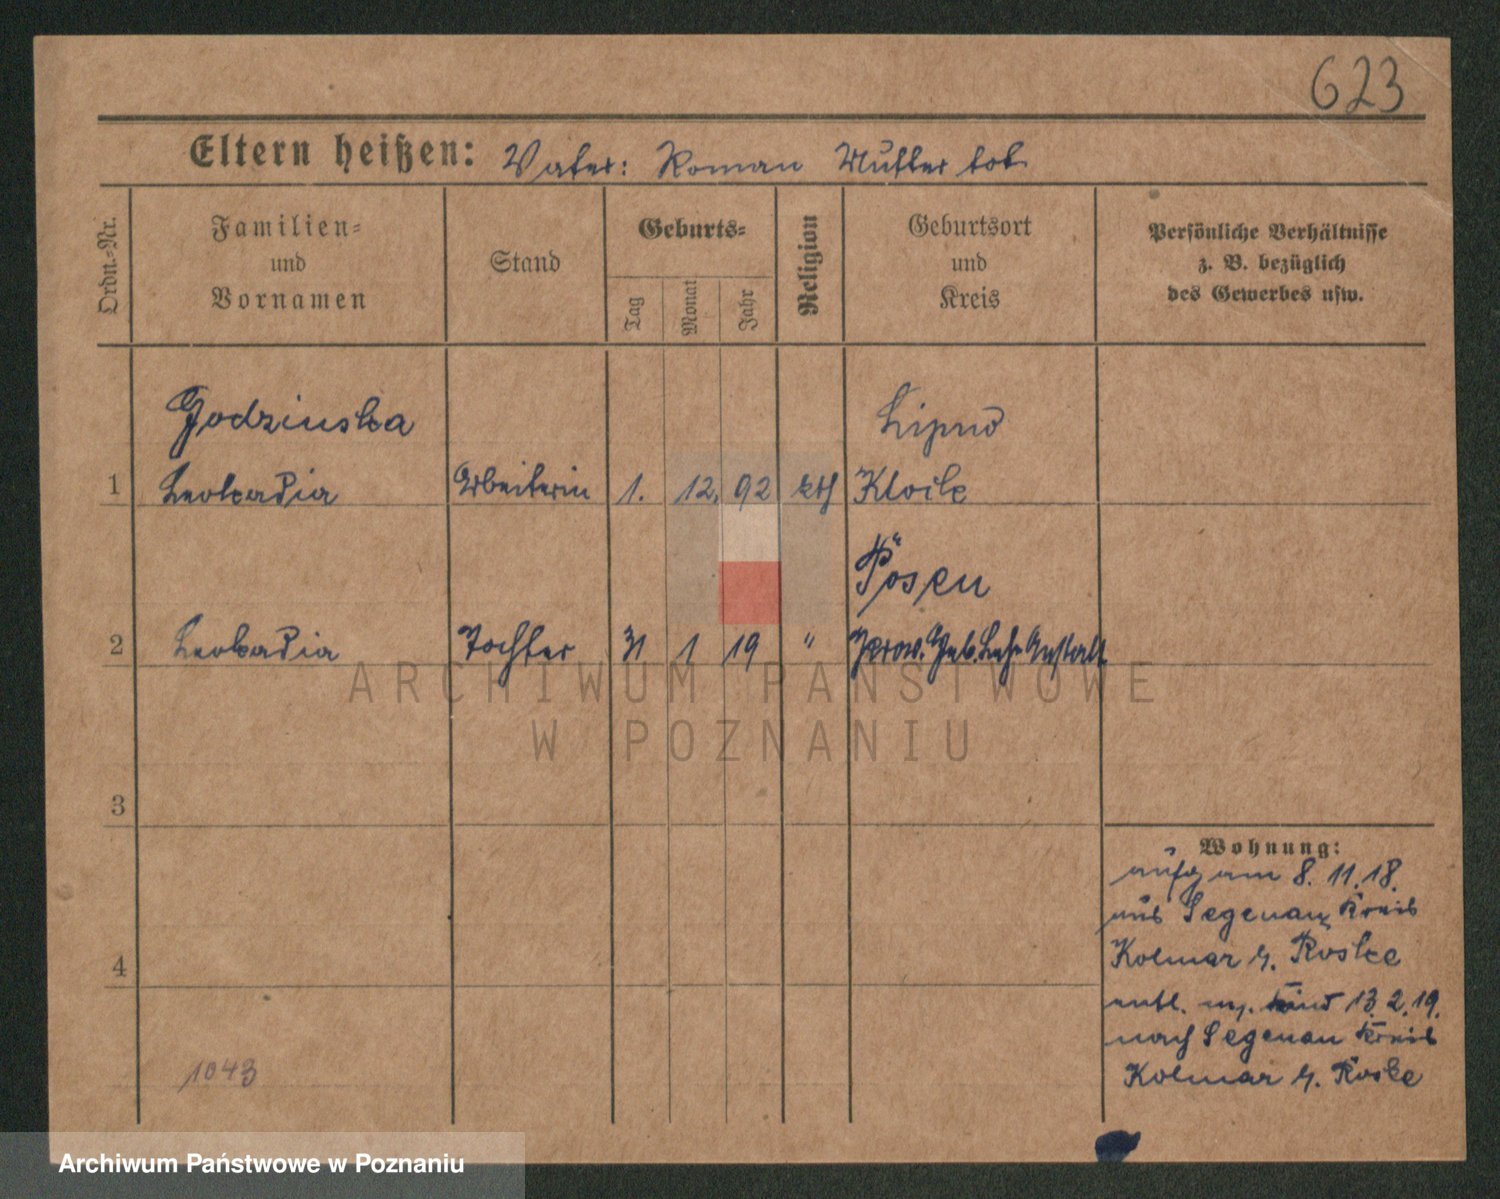 623
Eltern heißen: Vater: Roman Mutter tot
Ordn.-Nr.
Familien-
und
Vornamen
Stand
Geburts-
Tag
Monat
Jahr
Religion
Geburtsort
und
Kreis
Persönliche Verhältnisse
z. B. bezüglich
des Gewerbes usw.
Godzinska Lipno
1 Leokadia Arbeiterin 1. 12. 92 kth
Posen
2 Leokadia Tochter 31 1 19 " Prov. Heb. Lehr Anstalt
3
Wohnung:
aufg am 8. 11. 18.
aus Segenau Kreis
4 Kolmar b. Roske
entl. m. Kind 13. 2. 19.
nach Segenau Kreis
Kolmar b. Roske
1043
ARCHIWUM PAŃSTWOWE
W POZNANIU
Archiwum Państwowe w Poznaniu